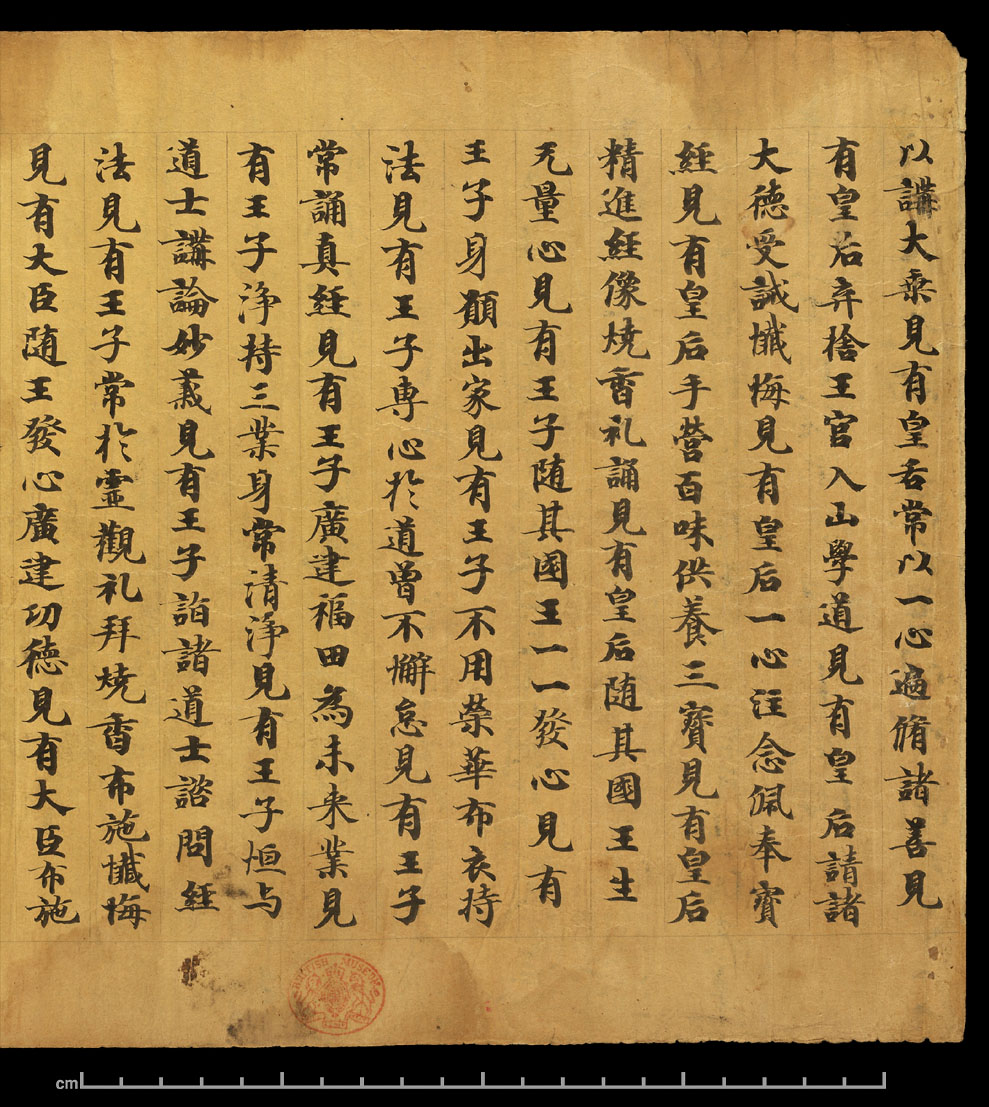 以講大乘見有皇后常以一心遍脩諸善見
有皇后弃捨王宫入山學道見有皇后請諸
大德受誡懺悔見有皇后一心注念佩奉寶
經見有皇后手營百味供養三寶見有皇后
精進經像燒香礼誦見有皇后随其國王生
无量心見有王子随其國王一一發心見有
王子身願出家見有王子不用榮華布衣持
法見有王子専心於道曾不懈怠見有王子
常誦真經見有王子廣建福田為未来業見
有王子淨持三業身常清淨見有王子恒与
道士講論妙義見有王子詣諸道士諮問經
法見有王子常於靈觀礼拜燒香布施懺悔
見有大臣随王發心廣建功德見有大臣布施
BRITISH MUSEUM
cm